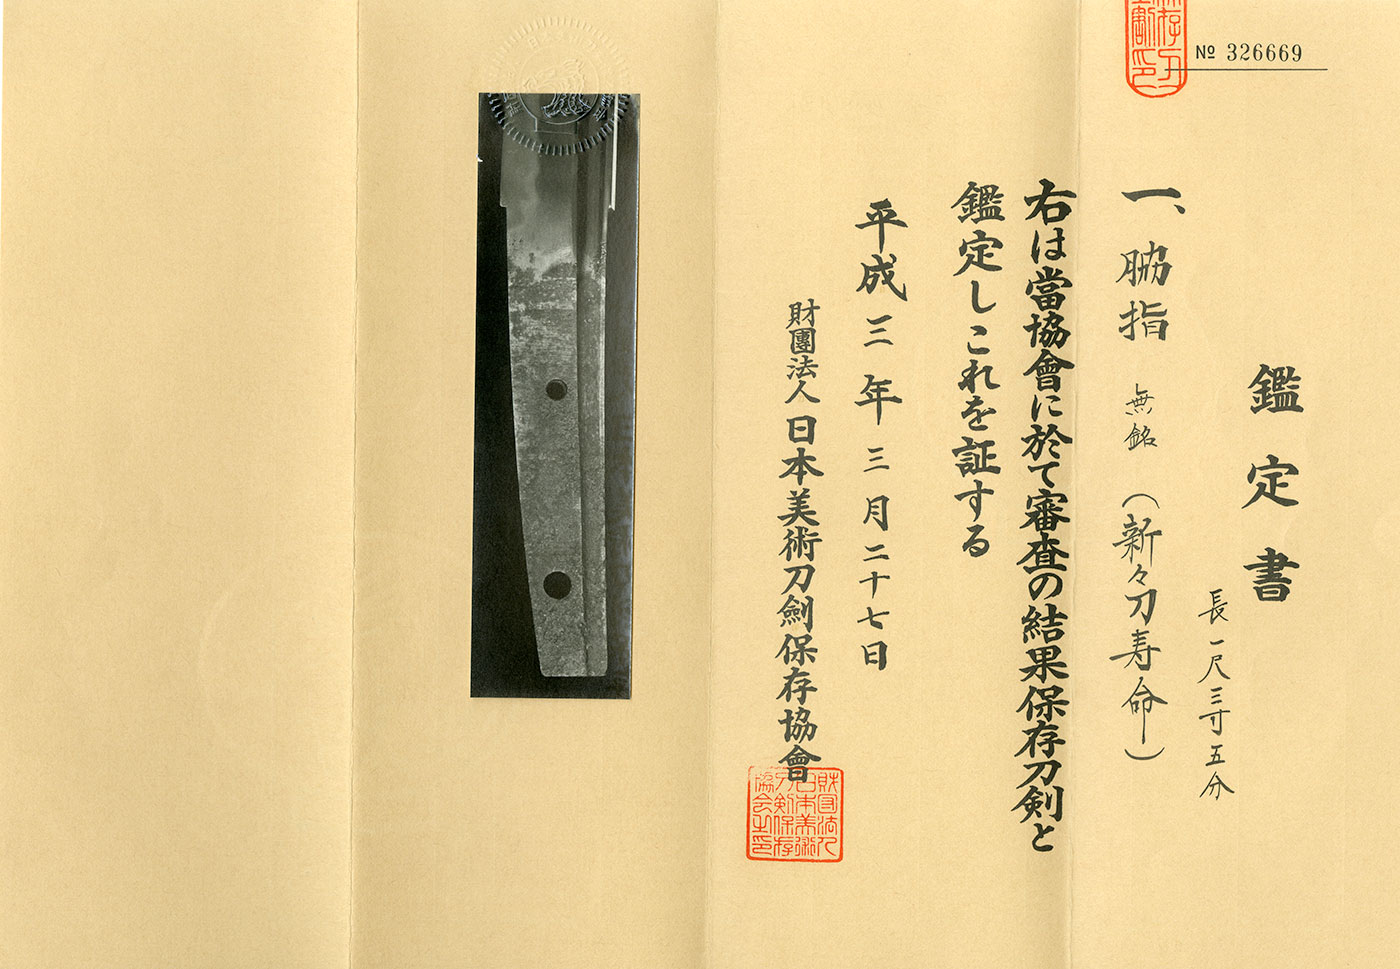 № 326669
鑑定書
長一尺三寸五分
一、脇指 無銘 (新々刀寿命)
右は當協會に於て審査の結果保存刀剣と
鑑定しこれを証する
平成三年三月二十七日
財團法人日本美術刀劍保存協會
財団法人
日本美術
刀剣保存
協会之印